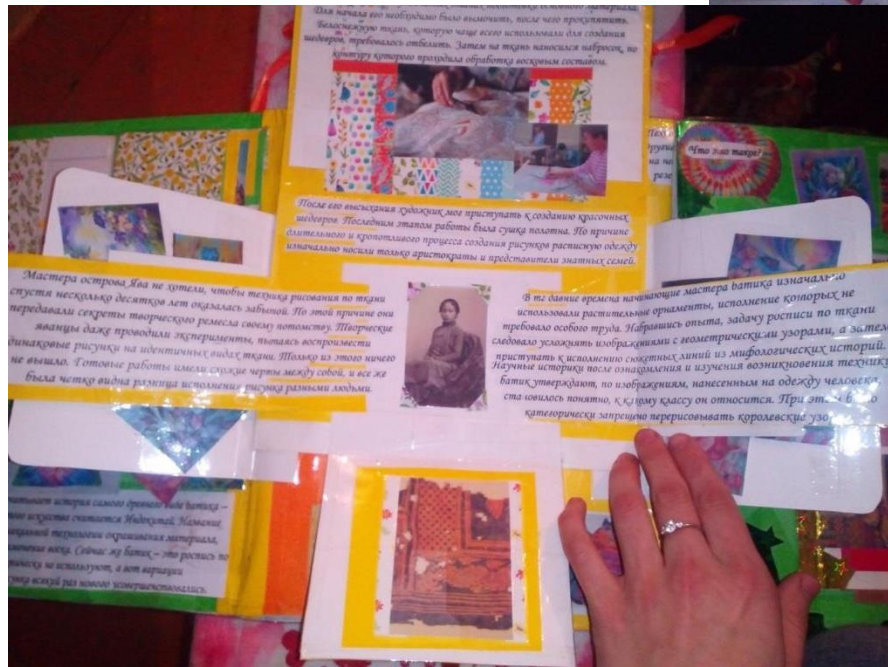 Для начала его необходимо было вымочить, после чего прокипятить.
Белоснежную ткань, которую чаще всего использовали для создания
шедевров, требовалось отбелить. Затем на ткань наносился набросок, по
контуру которого проходила обработка восковым составом.
После его высыхания художник мог приступать к созданию красочных
шедевров. Последним этапом работы была сушка полотна. По причине
длительного и кропотливого процесса создания рисунков расписную одежду
изначально носили только аристократы и представители знатных семей.
Что это такое?
Мастера острова Ява не хотели, чтобы техника рисования по ткани
спустя несколько десятков лет оказалась забытой. По этой причине они
передавали секреты творческого ремесла своему потомству. Творческие
яванцы даже проводили эксперименты, пытаясь воспроизвести
динаковые рисунки на идентичных видах ткани. Только из этого ничего
не вышло. Готовые работы имели схожие черты между собой, и все же
была четко видна разница исполнения рисунка разными людьми.
В те давние времена начинающие мастера батика изначально
использовали растительные орнаменты, исполнение которых не
требовало особого труда. Набравшись опыта, задачу росписи по ткани
следовало усложнять изображениями с геометрическими узорами, а затем
приступать к исполнению сюжетных линий из мифологических историй.
Научные историки после ознакомления и изучения возникновения техники
батик утверждают, по изображениям, нанесенным на одежду человека,
становилось понятно, к какому классу он относится. При этом было
категорически запрещено перерисовывать королевские узо
читывает история самого древнего вида батика –
искусства считается Индокитай. Название
технологии окрашивания материала,
воска. Сейчас же батик – это роспись по
не используют, а вот вариации
всякий раз нового усовершенствовались.